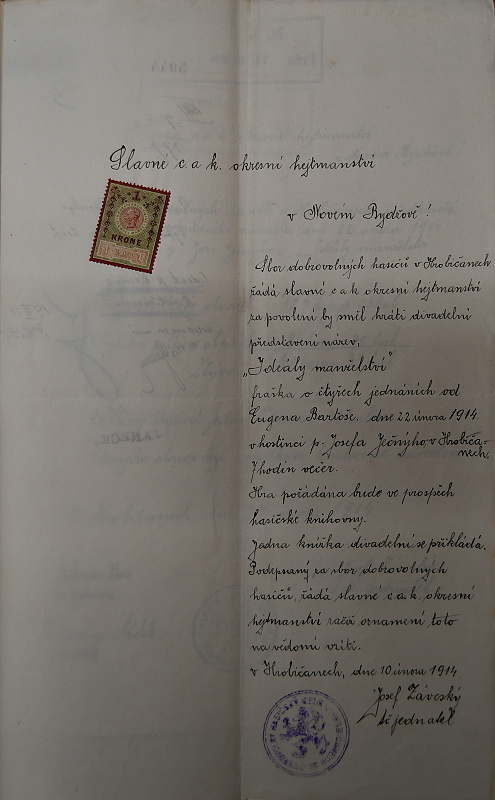 Slavné c. a k. okresní hejtmanství
v Novém Bydžově!
1
KRONE
Sbor dobrovolných hasičů v Hrobičanech
žádá slavné c a k okresní hejtmanství
za povolení by směl hráti divadelní
představení název,
„Ideály manželství"
fraška o čtyřech jednáních od
Eugena Bartoše. dne 22 února 1914.
v hostinci p. Josefa Ječnýho, v Hrobiča-
nech.
7 hodin večer.
Hra pořádána bude ve prospěch
hasičské knihovny.
Jedna knížka divadelní se přikládá.
Podepsaný za sbor dobrovolných
hasičů, žádá slavné c. a. k. okresní
hejtmanství račiž oznamení toto
na vědomí vzíti.
v Hrobičanech, dne 10 února 1914
Josef Záveský
jednatel